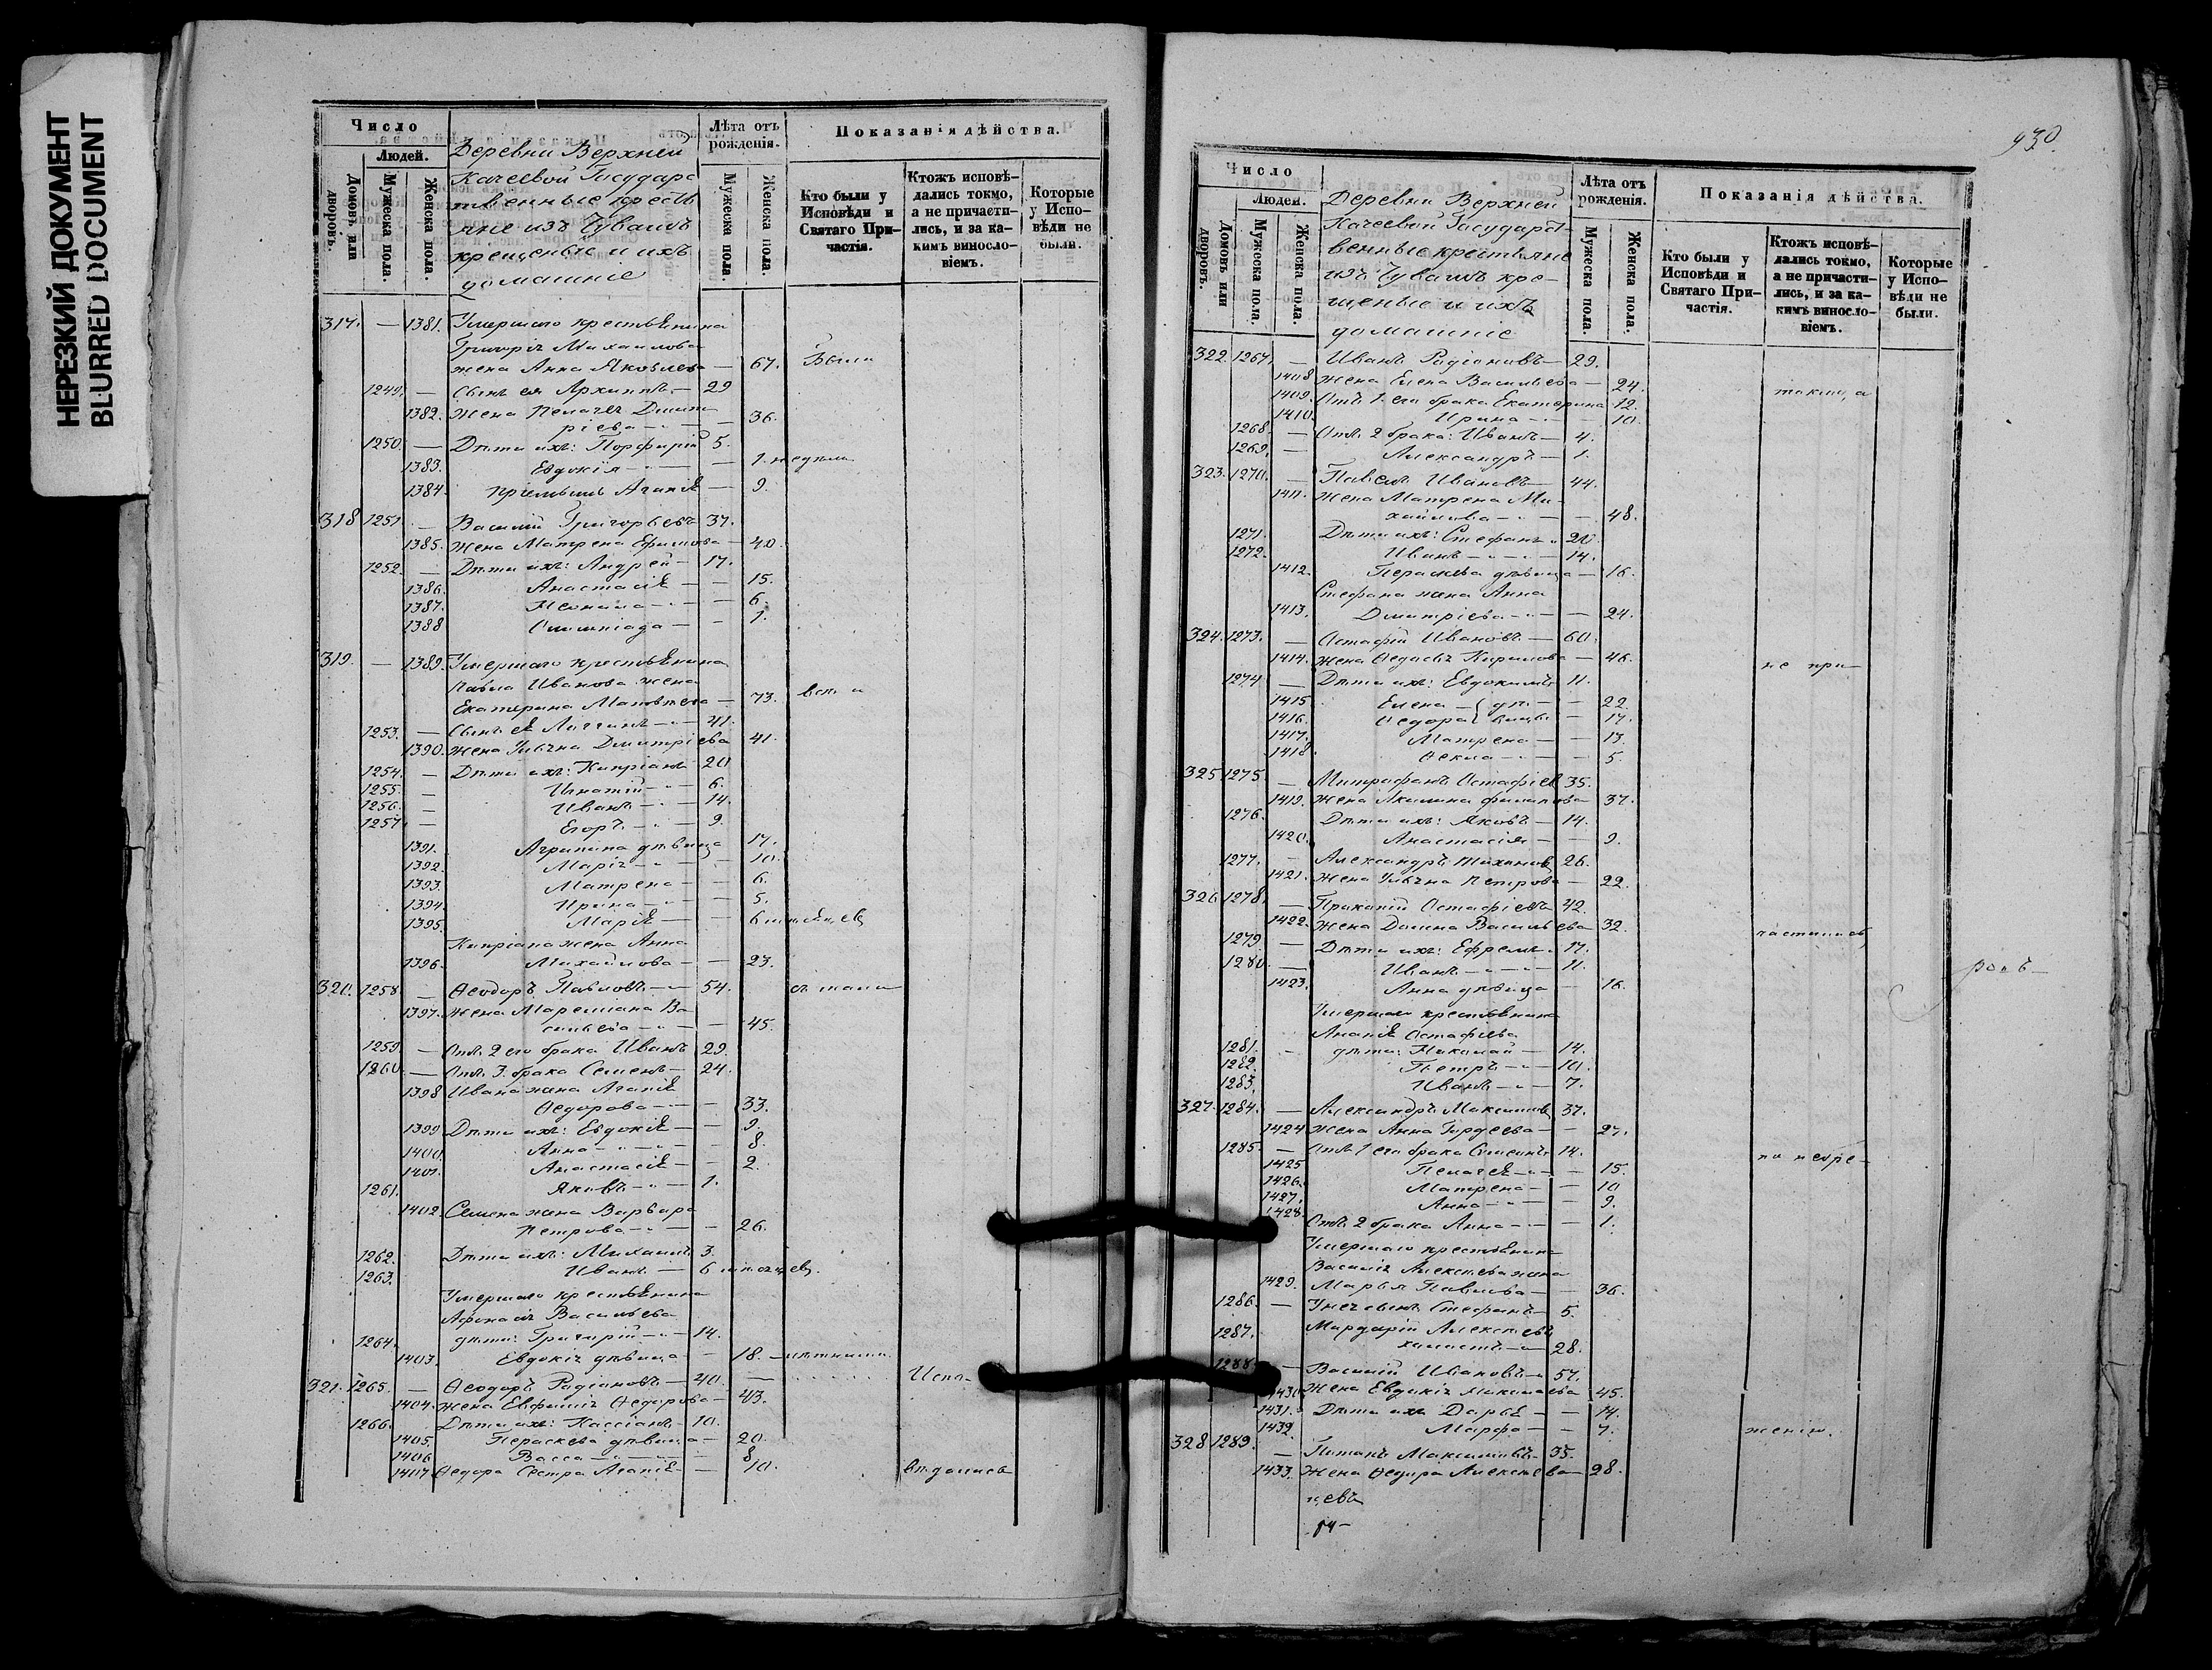 НЕРЕЗКИЙ ДОКУМЕНТ
BLURRED DOCUMENT
Число
Людей.
Домовъ или дворовъ.
Мужеска пола.
Женска пола.
Деревни Верхней
Качеевой Государс
твенные кресть
яне изъ Чувашъ
крещеные и ихъ
домашніе
Лѣта отъ рожденія.
Мужеска пола.
Женска пола.
Показанія дѣйства.
Кто были у Исповѣди и Святаго Причастія.
Ктожъ исповѣдались токмо, а не причастились, и за какимъ винословіемъ.
Которые у Исповѣди не были.
317. — 1381. Умершаго крестьянина
Григорія Михаилова
жена Анна Яковлева — 67. Были
1249. — Сынъ ея Архиппъ — 29
1382. Жена Пелагея Димит
ріева — 36.
1250. — Дѣти ихъ: Порфирій 5.
1383. Евдокія — 1. недѣли
1384. Агапія — 9.
318 1251 — Василій Григорьевъ 37.
1385. Жена Матрена Ефимова — 40.
1252. — Дѣти ихъ: Андрей — 17.
1386. Анастасія — 15.
1387. — 6.
1388 Олимпіада — 1.
319. — 1389. Умершаго крестьянина
Павла Иванова жена
Екатерина Матвѣева — 73. всѣ и
1253. — Сынъ ея Логгинъ — 41.
1390. Жена Ульяна Димитріева 41.
1254. — Дѣти ихъ: Кипріанъ 20
1255. — Игнатій — 6.
1256. — Иванъ — 14.
1257. — Егоръ — 9.
1391. Агрипина дѣвица 17.
1392. Марія — 10.
1393. Матрена — 6.
1394. Ирина — 5.
1395. Марія — 6 мѣсяцев
Кипріана жена Анна
1396. Михайлова — 23.
320. 1258. — Ѳеодоръ Павловъ — 54.
1397. Жена Мареміана Ва
сильева — 45.
1259. — Отъ 2 его брака Иванъ 29.
1260. — Отъ 3. брака Семенъ — 24.
1398 Ивана жена Агапія
Ѳедорова — 33.
1399 Дѣти ихъ: Евдокія — 9.
1400. Анна — 8.
1401. Анастасія — 2.
1261. Яковъ — 1.
1402. Семена жена Варвара
Петрова — 26.
1262. Дѣти ихъ: Михаилъ 3.
1263. Иванъ — 6 мѣсяцев.
Умершаго крестьянина
Афанасія Васильева
1264. дѣти: Григорій — 14.
1403. Евдокія дѣвица — 18.
321. 1265. — Ѳеодоръ Родіоновъ — 40. — Испо-
1404. Жена Евфимія Ѳедорова — 43.
1266. Дѣти ихъ: Кассіанъ — 10.
1405. Параскева дѣвица — 20.
1406 Васса — 8.
1407. Ѳедора Сестра Агапія — 10. вѣдались
930.
Число
Людей.
Домовъ или дворовъ.
Мужеска пола.
Женска пола.
Деревни Верхней
Качеевой Государст-
венные крестьяне
изъ Чувашъ кре-
щеные и ихъ
домашніе
Лѣта отъ рожденія.
Мужеска пола.
Женска пола.
Показанія дѣйства.
Кто были у Исповѣди и Святаго Причастія.
Ктожъ исповѣдались токмо, а не причастились, и за какимъ винословіемъ.
Которые у Исповѣди не были.
322. 1267. — Иванъ Родіоновъ — 29.
1408 Жена Елена Васильева — 24. токмо, а
1409. Отъ 1. его брака Екатерина 12.
1410. Ирина — 10.
1268. — Отъ 2 брака: Иванъ — 4.
1269. — Александръ — 1.
323. 1270. — Павелъ Ивановъ — 44.
1411. Жена Матрена Ми-
хайлова — 48.
1271. Дѣти ихъ: Стефанъ 20.
1272. Иванъ — 14.
1412. Параскева дѣвица — 16.
Стефана жена Анна
1413. Дмитріева — 24.
324. 1273. — Остафій Ивановъ — 60.
1414. Жена Кирилова — 46. не при-
1274 — Дѣти ихъ: Евдокимъ 11.
1415 Елена — дѣ- — 22.
1416. Ѳедора вицы — 17.
1417. Матрена — 13.
1418. Ѳекла — 5.
325 1275. — Митрофанъ Остафіев 35.
1419. Жена Акилина Филипова 37.
1276. Дѣти ихъ: Яковъ — 14.
1420. Анастасія — 9.
1277. — Александръ Тихонов 26.
1421. Жена Ульяна Петрова — 22.
326 1278. — Прокопій Остафіевъ 42.
1422. Жена Домна Васильева 32. частились
1279. — Дѣти ихъ: Ефремъ 17.
1280. — Иванъ — 11.
1423. Анна дѣвица — 16.
Умершаго крестьянина
Ананія Остафіева
1281. — дѣти: Николай — 14.
1282. Петръ — 10.
1283. Иванъ — 7.
327 1284. — Александръ Максимов 37.
1424 Жена Анна Гордеева — 27.
1285. — Отъ 1 его брака Семенъ 14. по небре-
1425 Пелагея — 15.
1426. Матрена — 10
1427. Анна — 9.
1428. Отъ 2 брака Анна — 1.
Умершаго крестьянина
Василія Алексѣева жена
1429. Марья Павлова — 36.
1286. — У нея сынъ Стефанъ 5.
1287. Мардарій Алексѣевъ
холостъ — 28.
1288. — Василій Ивановъ — 57.
1430 Жена Евдокія Максимова 45.
1431. Дѣти ихъ Дарья — 14.
1432. Марфа — 7. женію.
328 1289. — Потапъ Максимовъ 35.
1433. Жена Ѳедора Алексѣева 28.